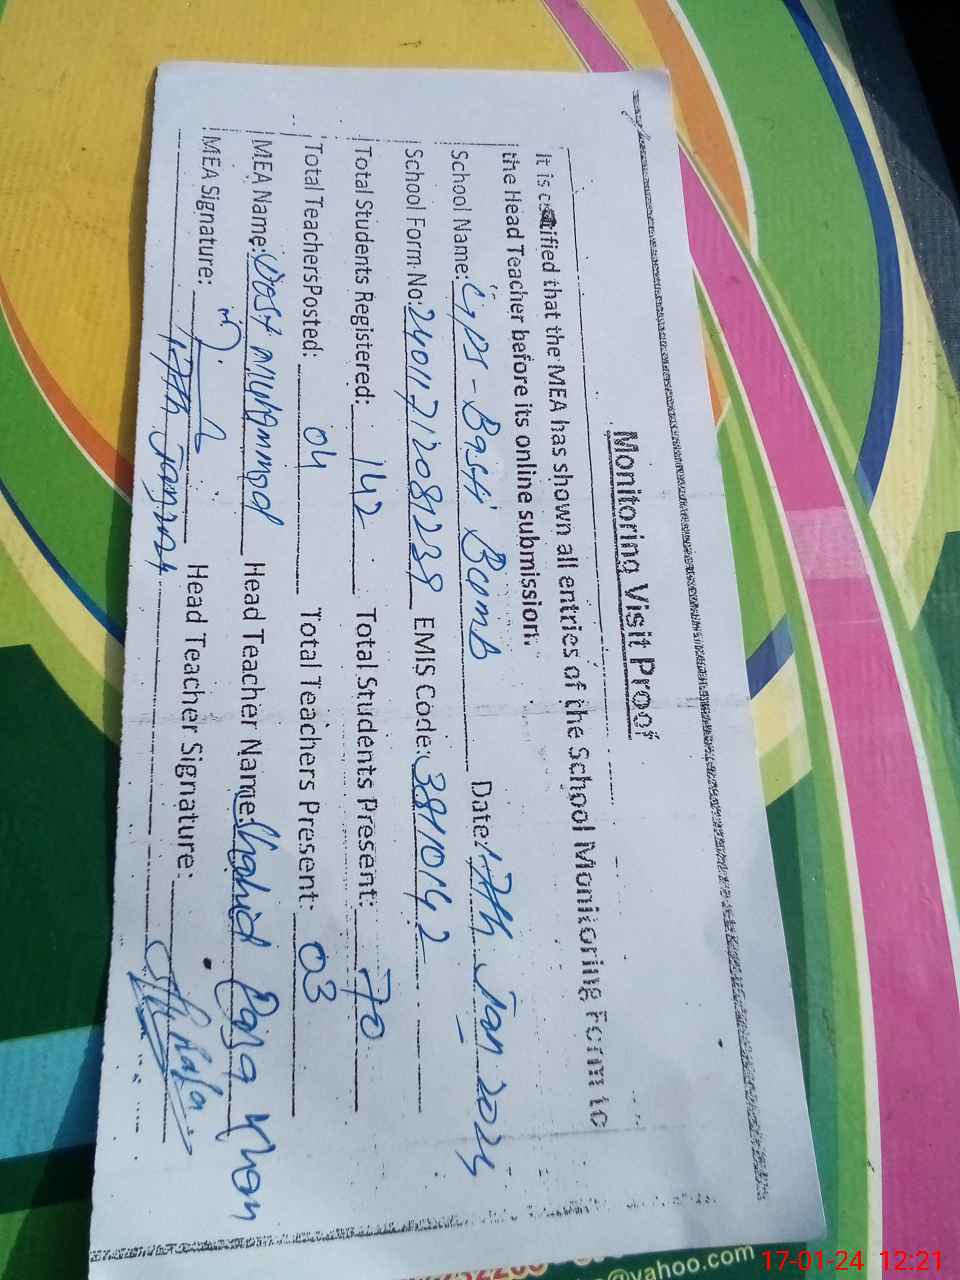 Monitoring Visit Proof
It is certified that the MEA has shown all entries of the School Monitoring Form to
the Head Teacher before its online submission.
School Name: GPS - Basti Bomb Date: 17th Jan 2024
School Form No: EMIS Code:
Total Students Registered: 142 Total Students Present: 70
Total Teachers Posted: 04 Total Teachers Present: 03
MEA Name: Dost Muhammad Head Teacher Name: Shahid Khan
MEA Signature: Head Teacher Signature:
17th Jan 2024
@yahoo.com
17-01-24 12:21